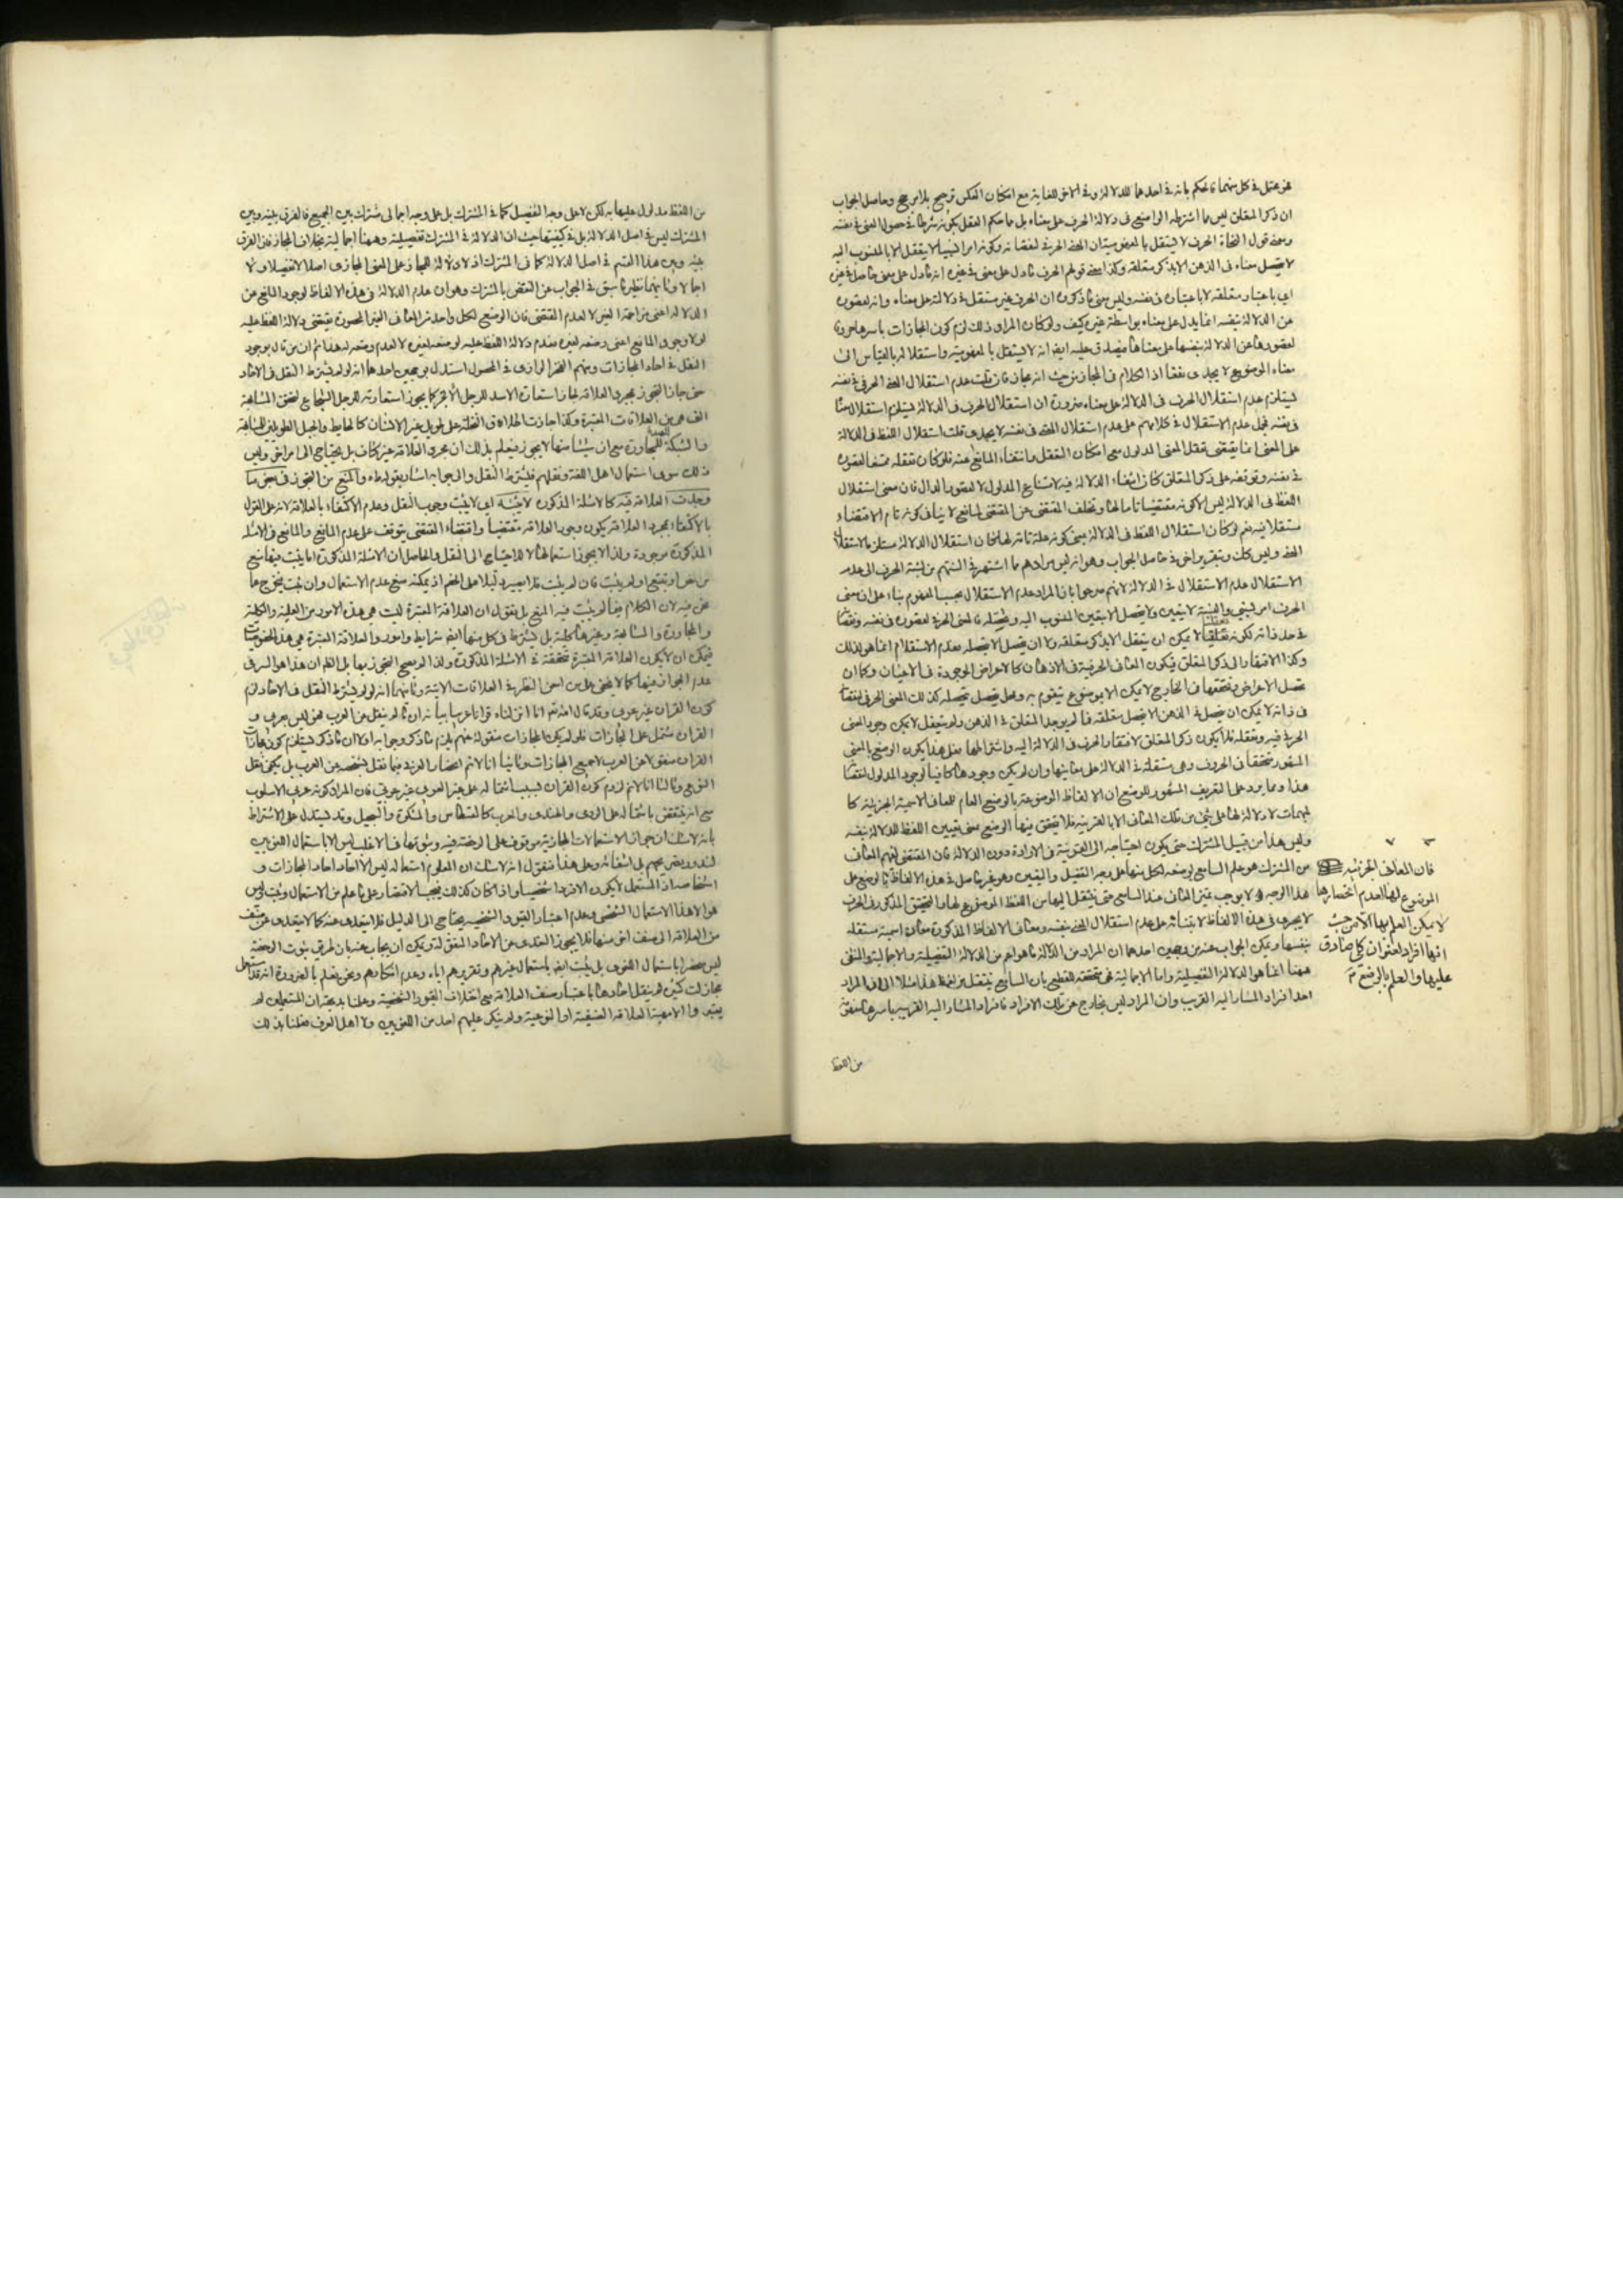 هو محتمل في كل منهما فالحكم بانه في احدهما للدلالة وفي الاخر للغاية مع امكان العكس ترجيح بلا مرجح وحاصل الجواب
ان ذكر المتعلق ليس مما اشترطه الواضع في دلالة الحرف على معناه بل مما حكم العقل بكونه شرطا في حصول المعنى في نفسه
ومعنى قول النحاة الحرف لا يستقل بالمفهومية ان المعنى الحرفي لنقصانه وكونه امرا نسبيا لا يتعقل الا بالمنسوب اليه
لا يتحصل معناه في الذهن الا بذكر متعلقه وكذا معنى قولهم الحرف ما دل على معنى في غيره انه ما دل على معنى حاصل في غيره
اي باعتبار متعلقه لا باعتباره في نفسه وليس معنى ما ذكروه ان الحرف غير مستقل في دلالته على معناه وانه لقصوره
عن الدلالة بنفسه انما يدل على معناه بواسطة غيره كيف ولو كان المراد ذلك لزم كون المجازات باسرها حروفا
لقصورها عن الدلالة بنفسها على معناها فيصدق عليه ايضا انه لا يستقل بالمفهومية واستقلاله بالقياس الى
معناه الموضوع له لا يجدى نفعا اذ الكلام في المجاز من حيث انه مجاز فان قلت عدم استقلال المعنى الحرفي في نفسه
يستلزم عدم استقلال الحرف في الدلالة على معناه ضرورة ان استقلال الحرف في الدلالة يستلزم استقلال معناه
في نفسه فحمل عدم الاستقلال في كلامهم على عدم استقلال المعنى في نفسه لا يجدى قلت استقلال اللفظ في الدلالة
على المعنى انما يقتضى تعقل المعنى المدلول مع امكان التعقل وانتفاء المانع عنه فلو كان تعقله ممتنعا لقصوره
في نفسه وتوقفه على ذكر المتعلق كان انتفاء الدلالة فيه لامتناع المدلول لا لقصور الدال فان معنى استقلال
اللفظ في الدلالة ليس الا كونه مقتضيا تاما لها وتخلف المقتضى عن المقتضى لمانع لا ينافى كونه تام الاقتضاء
مستقلا فيه نعم لو كان استقلال اللفظ في الدلالة بمعنى كونه علة تامة لها لكان استقلال الدلالة مستلزما لاستقلال
المعنى وليس كذلك وتقرير اخر في حاصل الجواب وهو انه ليس مرادهم مما اشتهر في السنتهم من نسبة الحرف الى عدم
الاستقلال عدم الاستقلال في الدلالة لانهم صرحوا بان المراد عدم الاستقلال بحسب المفهوم بناء على ان معنى
الحرف امر نسبي والنسبة لا تتعين ولا تحصل الا بتعين المنسوب اليه وتحصله فالمعنى الحرفي لقصوره في نفسه ونقصانه
في حد ذاته لكونه تعلقيا لا يمكن ان يتعقل الا بذكر متعلقه ولا ان يحصل الا بتحصله فعدم الاستقلال انما هو لذلك
وكذا الافتقار الى ذكر المتعلق فيكون المعاني الحرفية في الاذهان كالاعراض الموجودة في الاعيان وكما ان
تحصل الاعراض وتحققها في الخارج لا يمكن الا بموضوع تتقوم به ومحل يحصل بتحصله كذلك المعنى الحرفي لنقصانه
في ذاته لا يمكن ان يحصل في الذهن الا بتحصل متعلقه فما لم يوجد المتعلق في الذهن ولم يتعقل لا يمكن وجود المعنى
الحرفي فيه وتعقله فلا يكون ذكر المتعلق لافتقار الحرف في الدلالة اليه واشتراطها فعلى هذا يكون الوضع بالمعنى
المشهور متحققا في الحروف وهى مستقلة في الدلالة على معانيها وان لم يكن وجودها كافيا لوجود المدلول لنقصانه
هذا ومما يرد على التعريف المشهور للوضع ان الالفاظ الموضوعة بالوضع العام للمعاني الاسمية الجزئية كا
لمبهمات لا دلالة لها على شئ من تلك المعاني الا بالقرينة فلا يتحقق فيها الوضع بمعنى تعيين اللفظ للدلالة بنفسه
وليس هذا من قبيل المشترك حتى يكون احتياجه الى القرينة في الارادة دون الدلالة فان المقتضى لفهم المعاني
من المشترك هو علم السامع بوضعه لكل منها على وجه التفصيل والتعيين وهو غير حاصل في هذه الالفاظ فالوضع على
هذا الوجه لا يوجب تميز المعاني عند السامع حتى ينتقل اليها من اللفظ الموضوع لها وما التحقيق المذكور في الحرف
لا يجرى في هذه الالفاظ لابتنائه على عدم استقلال المعنى بنفسه ومعاني الالفاظ المذكورة معان اسمية مستقلة
بنفسها ويمكن الجواب عنه بوجهين احدهما ان المراد من الدلالة ما هو اعم من الدلالة التفصيلية والاجمالية والمنفى
ههنا انما هو الدلالة التفصيلية واما الاجمالية فهى متحققة للقطع بان السامع ينتقل من لفظ هذا مثلا الى ان المراد
احد افراد المشار اليه القريب وان المراد ليس بخارج عن تلك الافراد فافراد المشار اليه القريب باسرها متعقلة
من اللفظ
فان المعاني الجزئية
الموضوع لها لعدم انحصارها
لا يمكن العلم بها الا من حيث
انها افراد لعنوان كلي صادق
عليها والعلم بالوضع
من اللفظ مدلول عليها به لكن لا على وجه التفصيل كما في المشترك بل على وجه اجمالى مشترك بين الجميع فالفرق بينه وبين
المشترك ليس في اصل الدلالة بل في كيفيتها حيث ان الدلالة في المشترك تفصيلية وههنا اجمالية بخلاف المجاز فان الفرق
بينه وبين هذا القسم في اصل الدلالة كما في المشترك اذ لا دلالة للمجاز على المعنى المجازى اصلا لا تفصيلا ولا
اجمالا وثانيهما نظير ما سبق في الجواب عن النقض بالمشترك وهو ان عدم الدلالة في هذه الالفاظ لوجود المانع عن
الدلالة اعنى مزاحمة الغير لا لعدم المقتضى فان الوضع لكل واحد من المعانى الغير المحصورة يقتضى دلالة اللفظ عليه
لولا وجود المانع اعنى وضعه لغيره فعدم دلالة اللفظ عليه لوضعه لغيره لا لعدم وضعه له هذا ثم ان من قال بوجود
النقل في احاد المجازات ومنهم الفخر الرازى في المحصول استدل بوجهين احدهما انه لو لم يشترط النقل في الاحاد
حتى جاز التجوز بمجرد العلاقة لجاز استعارة الاسد للرجل الابخر كما يجوز استعارته للرجل الشجاع لتحقق المشابهة
التى هى من العلاقات المعتبرة وكذا جازت اطلاق النخلة على طويل غير الانسان كالحايط والجبل الطويلين للمشابهة
والشبكة للصيد للمجاورة مع ان شيئا منها لا يجوز فيعلم بذلك ان مجرد العلاقة غير كاف بل يحتاج الى امر اخر وليس
ذلك سوى استعمال اهل اللغة ونقلهم فليشترط النقل والى جوابه اشار بقوله والمنع من التجوز في بعض ما
وجدت العلاقة فيه كالامثلة المذكورة لا يثبته اى لا يثبت وجوب النقل وعدم الاكتفاء بالعلاقة لانه على القول
بالاكتفاء بمجرد العلاقة يكون وجود العلاقة مقتضيا واقتضاء المقتضى يتوقف على عدم المانع والمانع في الامثلة
المذكورة موجودة ولذا لا يجوز استعمالها لا للاحتياج الى النقل والحاصل ان الامثلة المذكورة اما يثبت فيها منع
من نص او تتبع او لم يثبت فان لم يثبت فلا يصير دليلا على الخصم اذ يمكنه منع عدم الاستعمال وان ثبت يخرج عما
نحن فيه لان الكلام فيما لم يثبت فيه المنع بل نقول ان العلاقة المعتبرة ليست هى هذه الامور من العلية والكلية
والمجاورة والمشابهة وغيرها كلية بل يشترط في كل منها ايضا شرايط وامور والعلاقة المعتبرة هى هذه الخصوصيات
فيمكن ان لا يكون العلاقة المعتبرة متحققة في الامثلة المذكورة ولذا لم يصح التجوز بها بل الظاهر ان هذا هو السر في
عدم الجواز فيها كما لا يخفى على من امعن النظر في العلاقات الاتية وثانيهما انه لو لم يشترط النقل في الاحاد لزم
كون القران غير عربى وقد قال الله تعالى انا انزلناه قرانا عربيا بيانه ان ما لم ينقل من العرب فهو ليس بعربى و
القران مشتمل على المجازات فلو لم يكن المجازات منقولة عنهم يلزم ما ذكر وجوابه اولا ان ما ذكر يستلزم كون مجازات
القران منقولا عن العرب لا جميع المجازات وثانيا انا لا نم انحصار العربية فيما نقل بشخصه عن العرب بل يكفى نقل
النوع وثالثا انا لا نم لزوم كون القران بسبب اشتماله على غير العربى غير عربى فان المراد كونه عربى الاسلوب
مع انه ينتقض باشتماله على الرومى والهندى والمعرب كالقسطاس والمشكوة والسجيل وقد يستدل على الاشتراط
بانه لا شك ان جواز الاستعمالات المجازية موقوف على الرخصة فيه وثبوتها في الاغلب ليس الا باستعمال اللغويين
لندور تصريحهم باستعماله وعلى هذا فنقول انه لا شك ان المعلوم استعماله ليس الا احاد احاد المجازات و
اشخاصه اذ المستعمل لا يكون الا فردا شخصيا واذا كان كذلك فيجب الاقتصار على ما علم من الاستعمال وثبت وليس
هو الا هذا الاستعمال الشخصى وعدم اعتبار القيود الشخصية يحتاج الى الدليل فلا يتعدى عنه كما لا يتعدى عن صنف
من العلاقة الى صنف اخر منها فلا يجوز التعدى عن الاحاد المنقولة ويمكن ان يجاب عنه بان طريق ثبوت الرخصة
ليس منحصرا باستعمال اللغوى بل يثبت ايضا باستعمال غيرهم وتقريرهم اياه وعدم انكارهم ونحن نعلم بالضرورة انه قد استعمل
مجازات كثيرة لم ينقل احادها باعتبار صنف العلاقة مع اختلاف القيود الشخصية وعلمنا بديهة ان المستعملين لم
يعتبروا الا هذه العلاقة الصنفية او النوعية ولم ينكر عليهم احد من اللغويين ولا اهل العرف فعلمنا بذلك